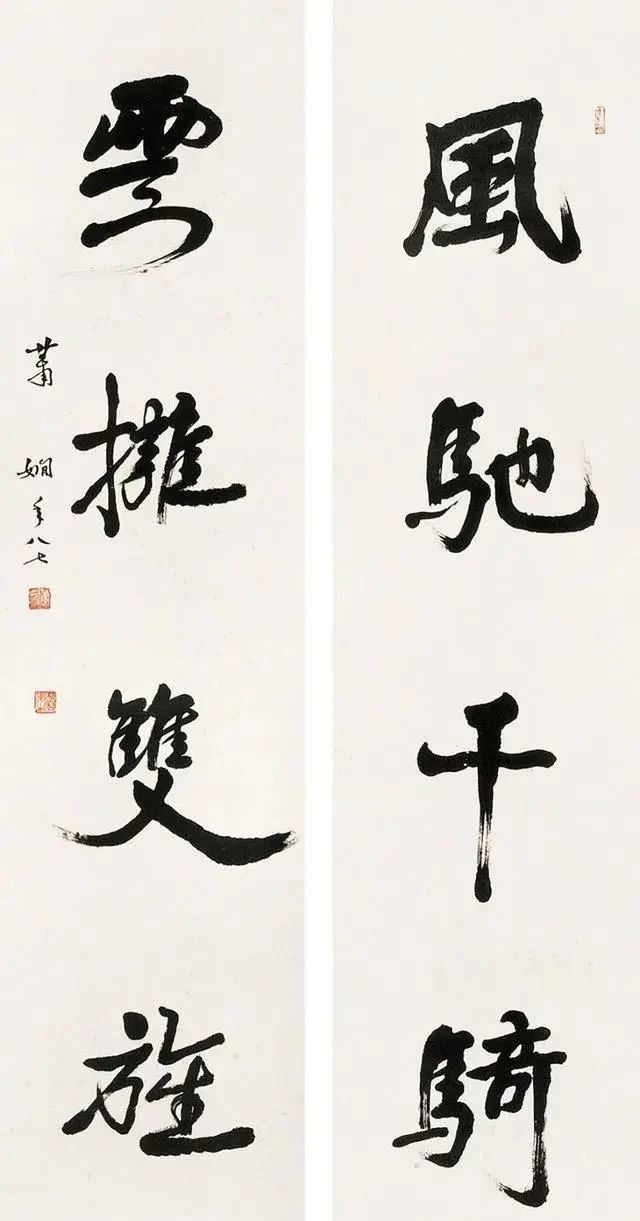 風馳千騎
雲擁雙旌
蕭嫻年八七